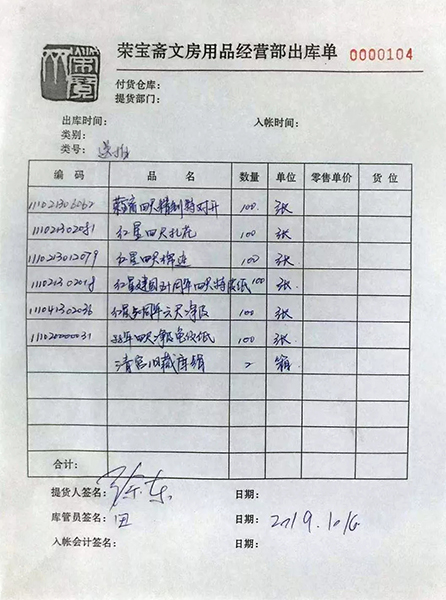 荣宝斋文房用品经营部出库单 0000104
付货仓库:
提货部门:
出库时间: 入帐时间:
类别:
类号:
编码 品名 数量 单位 零售单价 货位
四尺精制 对开 100 张
111021302081 红星四尺扎花 100 张
111021302079 红星四尺棉连 100 张
111021302018 红星建国五十周年四尺特皮纸 100 张
111041302036 红星 周年六尺净皮 100 张
111020000031 四尺净皮龟纹纸 100 张
清宫旧藏库绢 2 箱
合计:
提货人签名: 日期:
库管员签名: 田 日期: 2019.10/6
入帐会计签名: 日期: